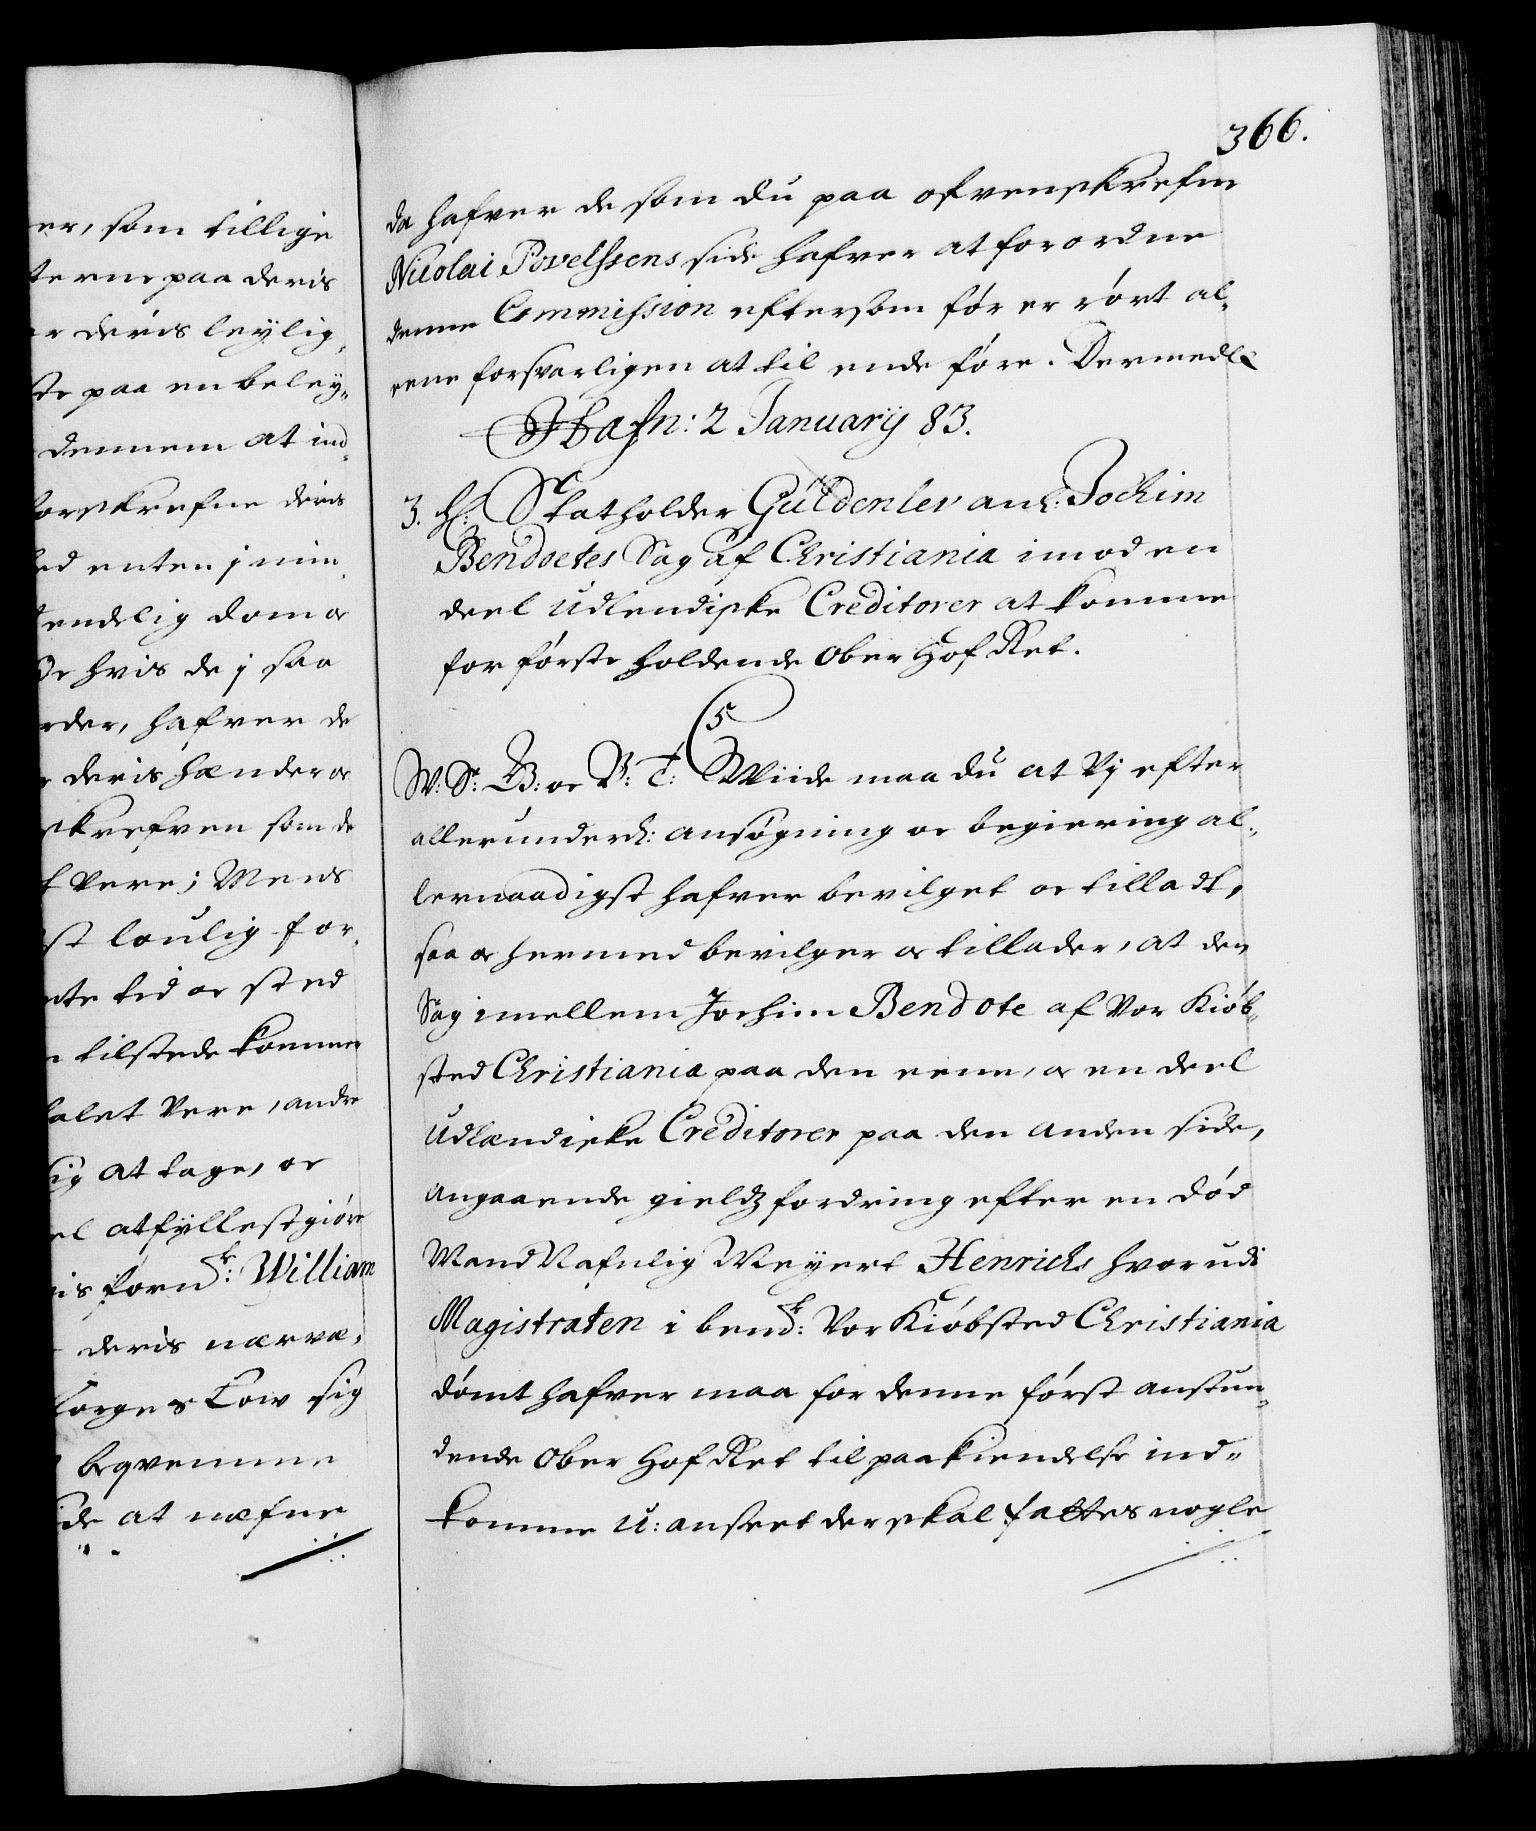 366.
er, som tillige
terne paa deris
er deris leylig,
ste paa en beley,,
dennem at ind,,
forskrefne deris
ed enten j min,
endelig dom oc
Oc hvis de j saa
rder, hafver de
deris hænder oc
skrefven som de
t vere; Mens
st loulig for,
nte tid oc sted
tilstede komme
talet vere, andre
sig at tage, oc
el at fyllestgiøre
is fornd: William
deris nærvæ,
Norges Low sig
beqvemme
ide at næfne
da hafver de som du paa ofvenskrefne
Nicolai Povelssens side hafver at forordne
denne Commission eftersom før er rørt al,,
eene forsvarligen at til ende føre. Dermed &
Hafn: 2 January 83.
3. H: Statholder Güldenlev anl: Jochim
Bendoetes Sag af Christiania imod en
deel Udlendiske Creditorer at komme
for første holdende Ober Hof Ret.
C5
W: S: G: oc V: T: Wiide maa du at Vj efter
allerunderd: ansøgning oc begiering al,,
lernaadigst hafver bevilget oc tilladt,
saa oc hermed bevilger oc tillader, at den
Sag imellem Jochim Bendote af Vor Kiøb,,
sted Christiania paa den eene, oc en deel
Udlændiske Creditorer paa den anden side,
angaaende gieldz fordring efter en død
Mand Nafnlig Meyert Henrichs hvorudi
Magistraten i bemd: Vor Kiøbsted Christiania
dømt hafver maa for denne først anstun,,
dende Ober Hof Ret til paakiendelse ind,,
komme u: anseet der skal fattes nogle